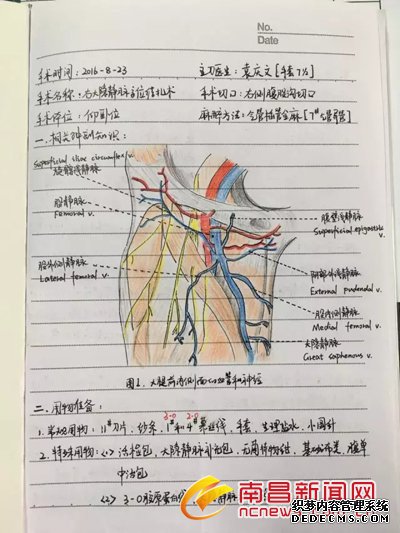 No.
Date
手术时间：2016-8-23 主刀医生：袁庆文［手套7½］
手术名称：右大隐静脉高位结扎术 手术切口：右侧腹股沟切口
手术体位：仰卧位 麻醉方法：全管插管全麻［7#
一、相关解剖知识：
Superficial iliac circumflex v.
旋髂浅静脉
股静脉
Femoral v.
股外侧静脉
Lateral femoral v.
腹壁浅静脉
Superficial epigastric v.
阴部外静脉
External pudendal v.
股内侧静脉
Medial femoral v.
大隐静脉
Great saphenous v.
图1. 大腿前内侧面的血管和神经
二、用物准备：
2-0 3-0
1. 常规用物：11#刀片、纱条、1#和4#慕丝线、手套、生理盐水、小圆针
2. 特殊用物：<1> 活检包、大隐静脉补充包、无菌持物钳、基础布类、腹单
中治包
<2> 3-0胶原蛋白线
南昌新闻网
ncnews.com.cn
织梦内容管理系统
DEDECMS.COM